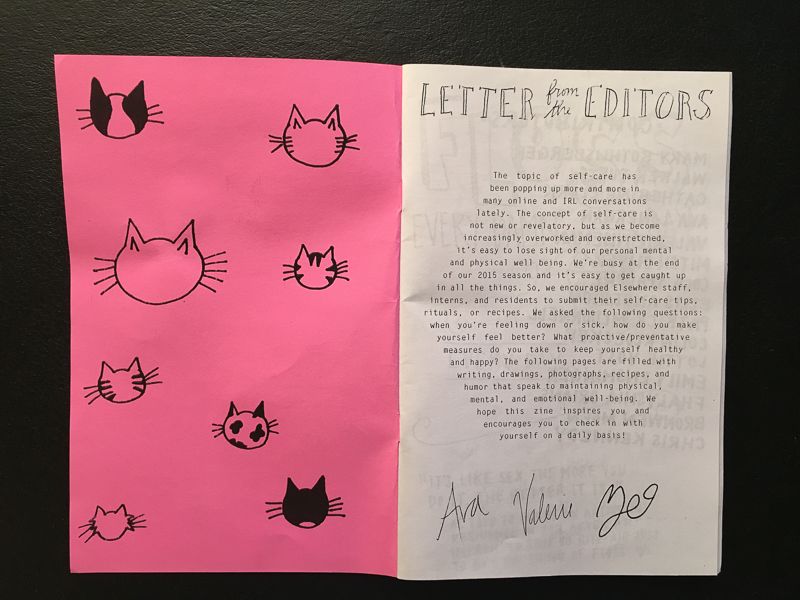 LETTER from the EDITORS
The topic of self-care has
been popping up more and more in
many online and IRL conversations
lately. The concept of self-care is
not new or revelatory, but as we become
increasingly overworked and overstretched,
it's easy to lose sight of our personal mental
and physical well being. We're busy at the end
of our 2015 season and it's easy to get caught up
in all the things. So, we encouraged Elsewhere staff,
interns, and residents to submit their self-care tips,
rituals, or recipes. We asked the following questions:
when you're feeling down or sick, how do you make
yourself feel better? What proactive/preventative
measures do you take to keep yourself healthy
and happy? The following pages are filled with
writing, drawings, photographs, recipes, and
humor that speak to maintaining physical,
mental, and emotional well-being. We
hope this zine inspires you and
encourages you to check in with
yourself on a daily basis!
Ava Valerie